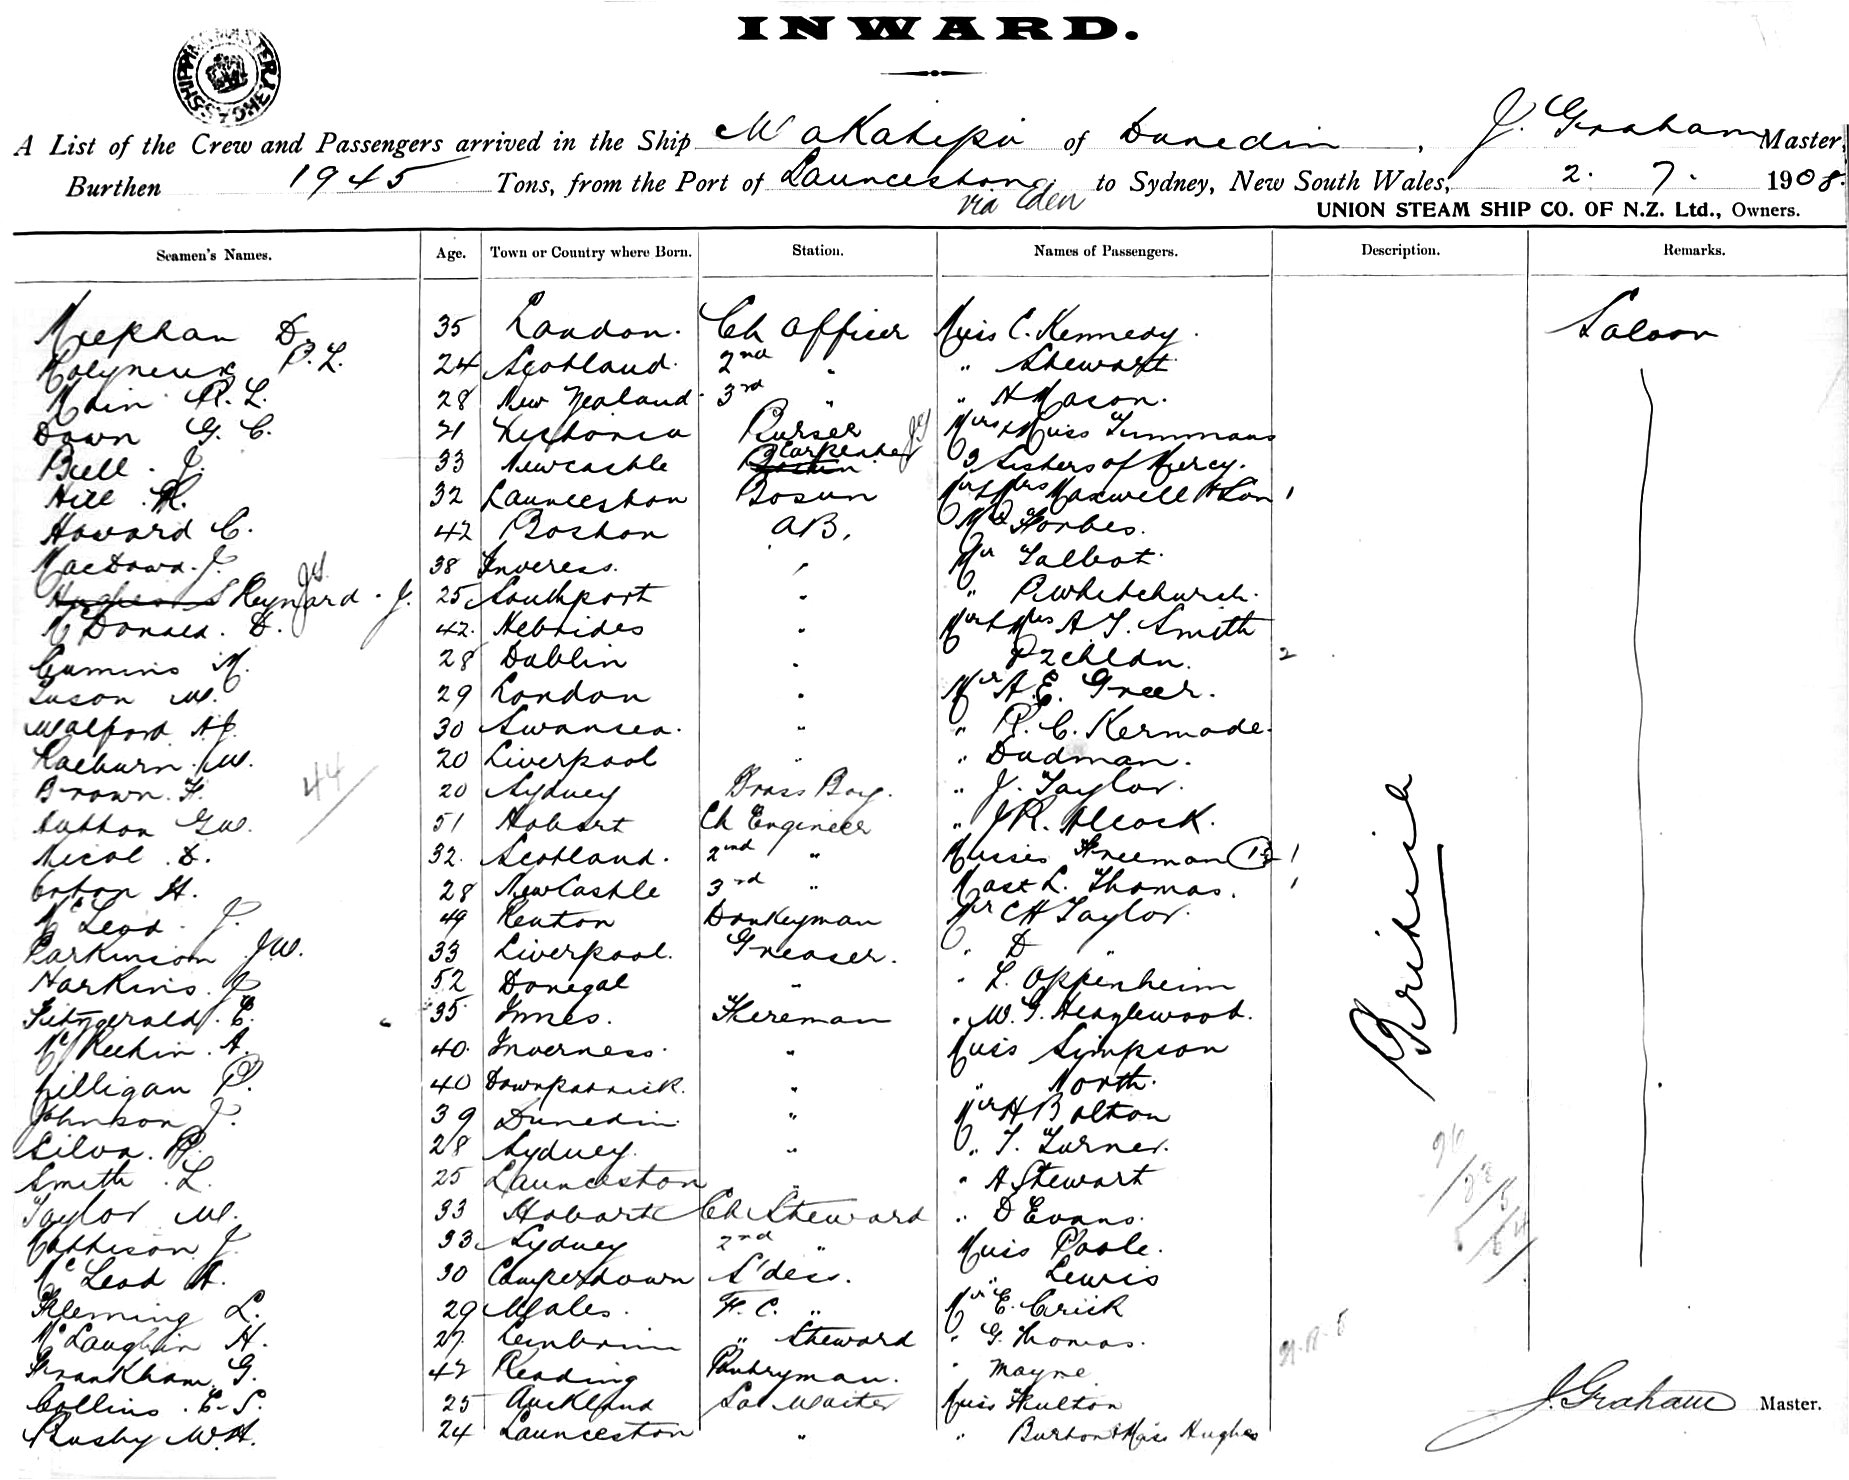 INWARD.
SHIPPING MASTER
A List of the Crew and Passengers arrived in the Ship Wakatipu of Dunedin, J. Graham Master,
Burthen 1945 Tons, from the Port of Launceston to Sydney, New South Wales, 2. 7. 1908.
via Eden
UNION STEAM SHIP CO. OF N.Z. Ltd., Owners.
Seamen's Names. Age. Town or Country where Born. Station. Names of Passengers. Description. Remarks.
D 35 London. Ch Officer Miss C. Kennedy. Saloon
Molyneux P. L. 24 Scotland. 2nd " " Stewart
Main R. L. 28 New Zealand 3rd " " H Mason.
Down G. C. 21 Victoria Purser Mrs & Miss Timmans
Bell. J. 33 Newcastle Carpenter JG 3 Sisters of Mercy.
Hill 32 Launceston Bosun Mr & Mrs Maxwell & Son 1
Howard C. 42 Boston AB. Forbes.
J. 38 Inveress. " Mr Talbot
Reynard. J. JG 25 Southport " " Whitchurch.
McDonald. D. 42 Hebrides " Mr & Mrs A J. Smith
Cumins M. 28 Dublin " & 2 Chldn. 2
W. 29 London " Mr A. E. Greer.
Walford A J. 30 Swansea. " " R. C. Kermode.
Raeburn. W. 20 Liverpool " " Dudman.
Brown. F. 44 20 Sydney Brass Boy. " J. Taylor.
Hutton G W. 51 Hobart Ch Engineer " J R. Alcock.
Nicol. D. 32. Scotland. 2nd " Misses Freeman 1
H. 28 NewCastle 3rd " Mast L. Thomas. 1
McLeod. J. 49 Renton Donkeyman Mr C H Taylor.
Parkinson J W. 33 Liverpool. Greaser. " D "
Harkins. J 52 Donegal " " L. Oppenheim
Fitzgerald. E. 35 Innes. Fireman " W. G. Heazlewood.
A. 40 Inverness. " Miss Simpson
Gilligan P. 40 Downpatrick. " " North.
Johnson J. 39 Dunedin " Mr H Bolton
Silva. P. 28 Sydney. " " T. Turner.
Smith. L. 25 Launceston " " A Stewart
Taylor W. 33 Hobart Ch Steward " D Evans.
Mathison J. 33 Sydney 2nd " Miss Poole.
McLeod A. 30 Camperdown S'dess. " Lewis
Fleming L. 29 Wales. F. C. " Mr E. Crick
McLaughlin H. 27. " Steward " G. Thomas.
Frankham G. 42 Reading Pantryman. " Mayne
Collins. E. S. 25 Auckland Sal Waiter Miss Fulton
Busby W. H. 24 Launceston " " Burton & Miss Hughes
British
J. Graham Master.